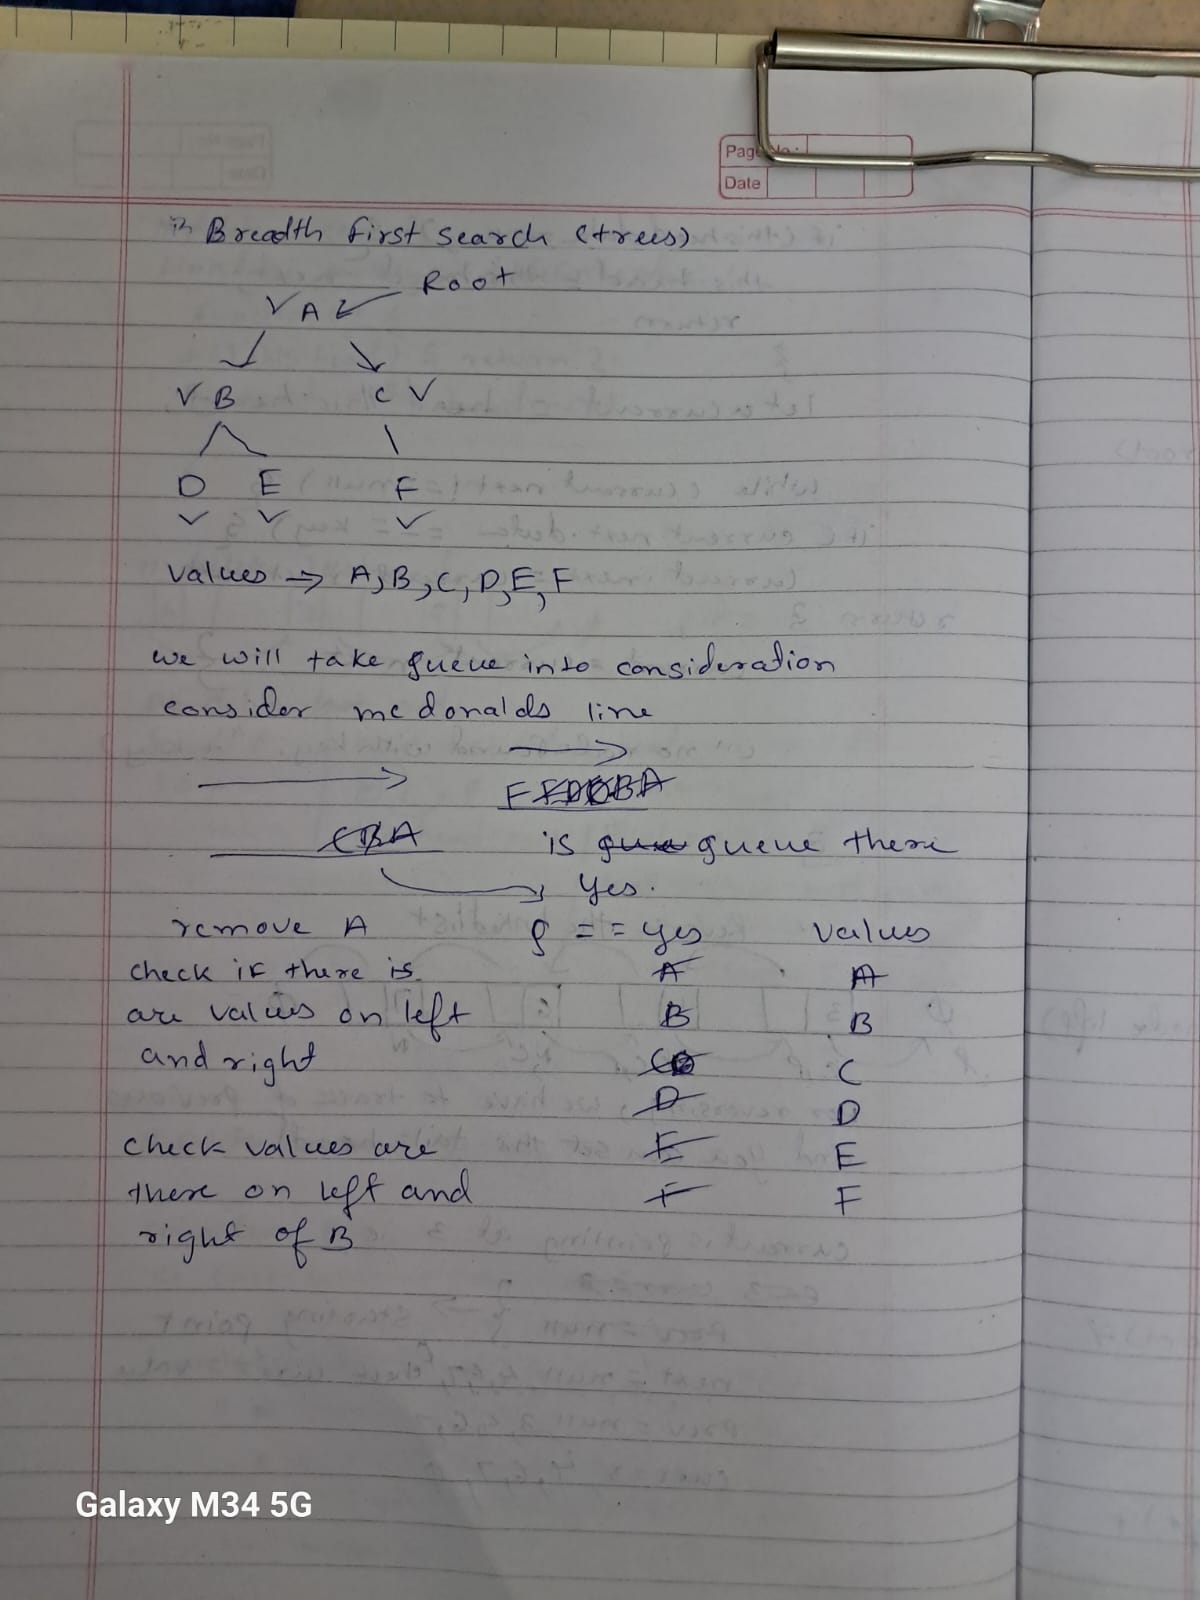 Page No.:
Date
Breadth first search (trees)
Root
A
B C
D E F
values → A, B, C, D, E, F
we will take queue into consideration
consider mcdonalds line
FEDCBA
CBA
is queue there
Yes.
remove A
q == yes values
check if there is
are values on left
and right
A A
B B
C C
D D
E E
F F
check values are
there on left and
right of B
Galaxy M34 5G